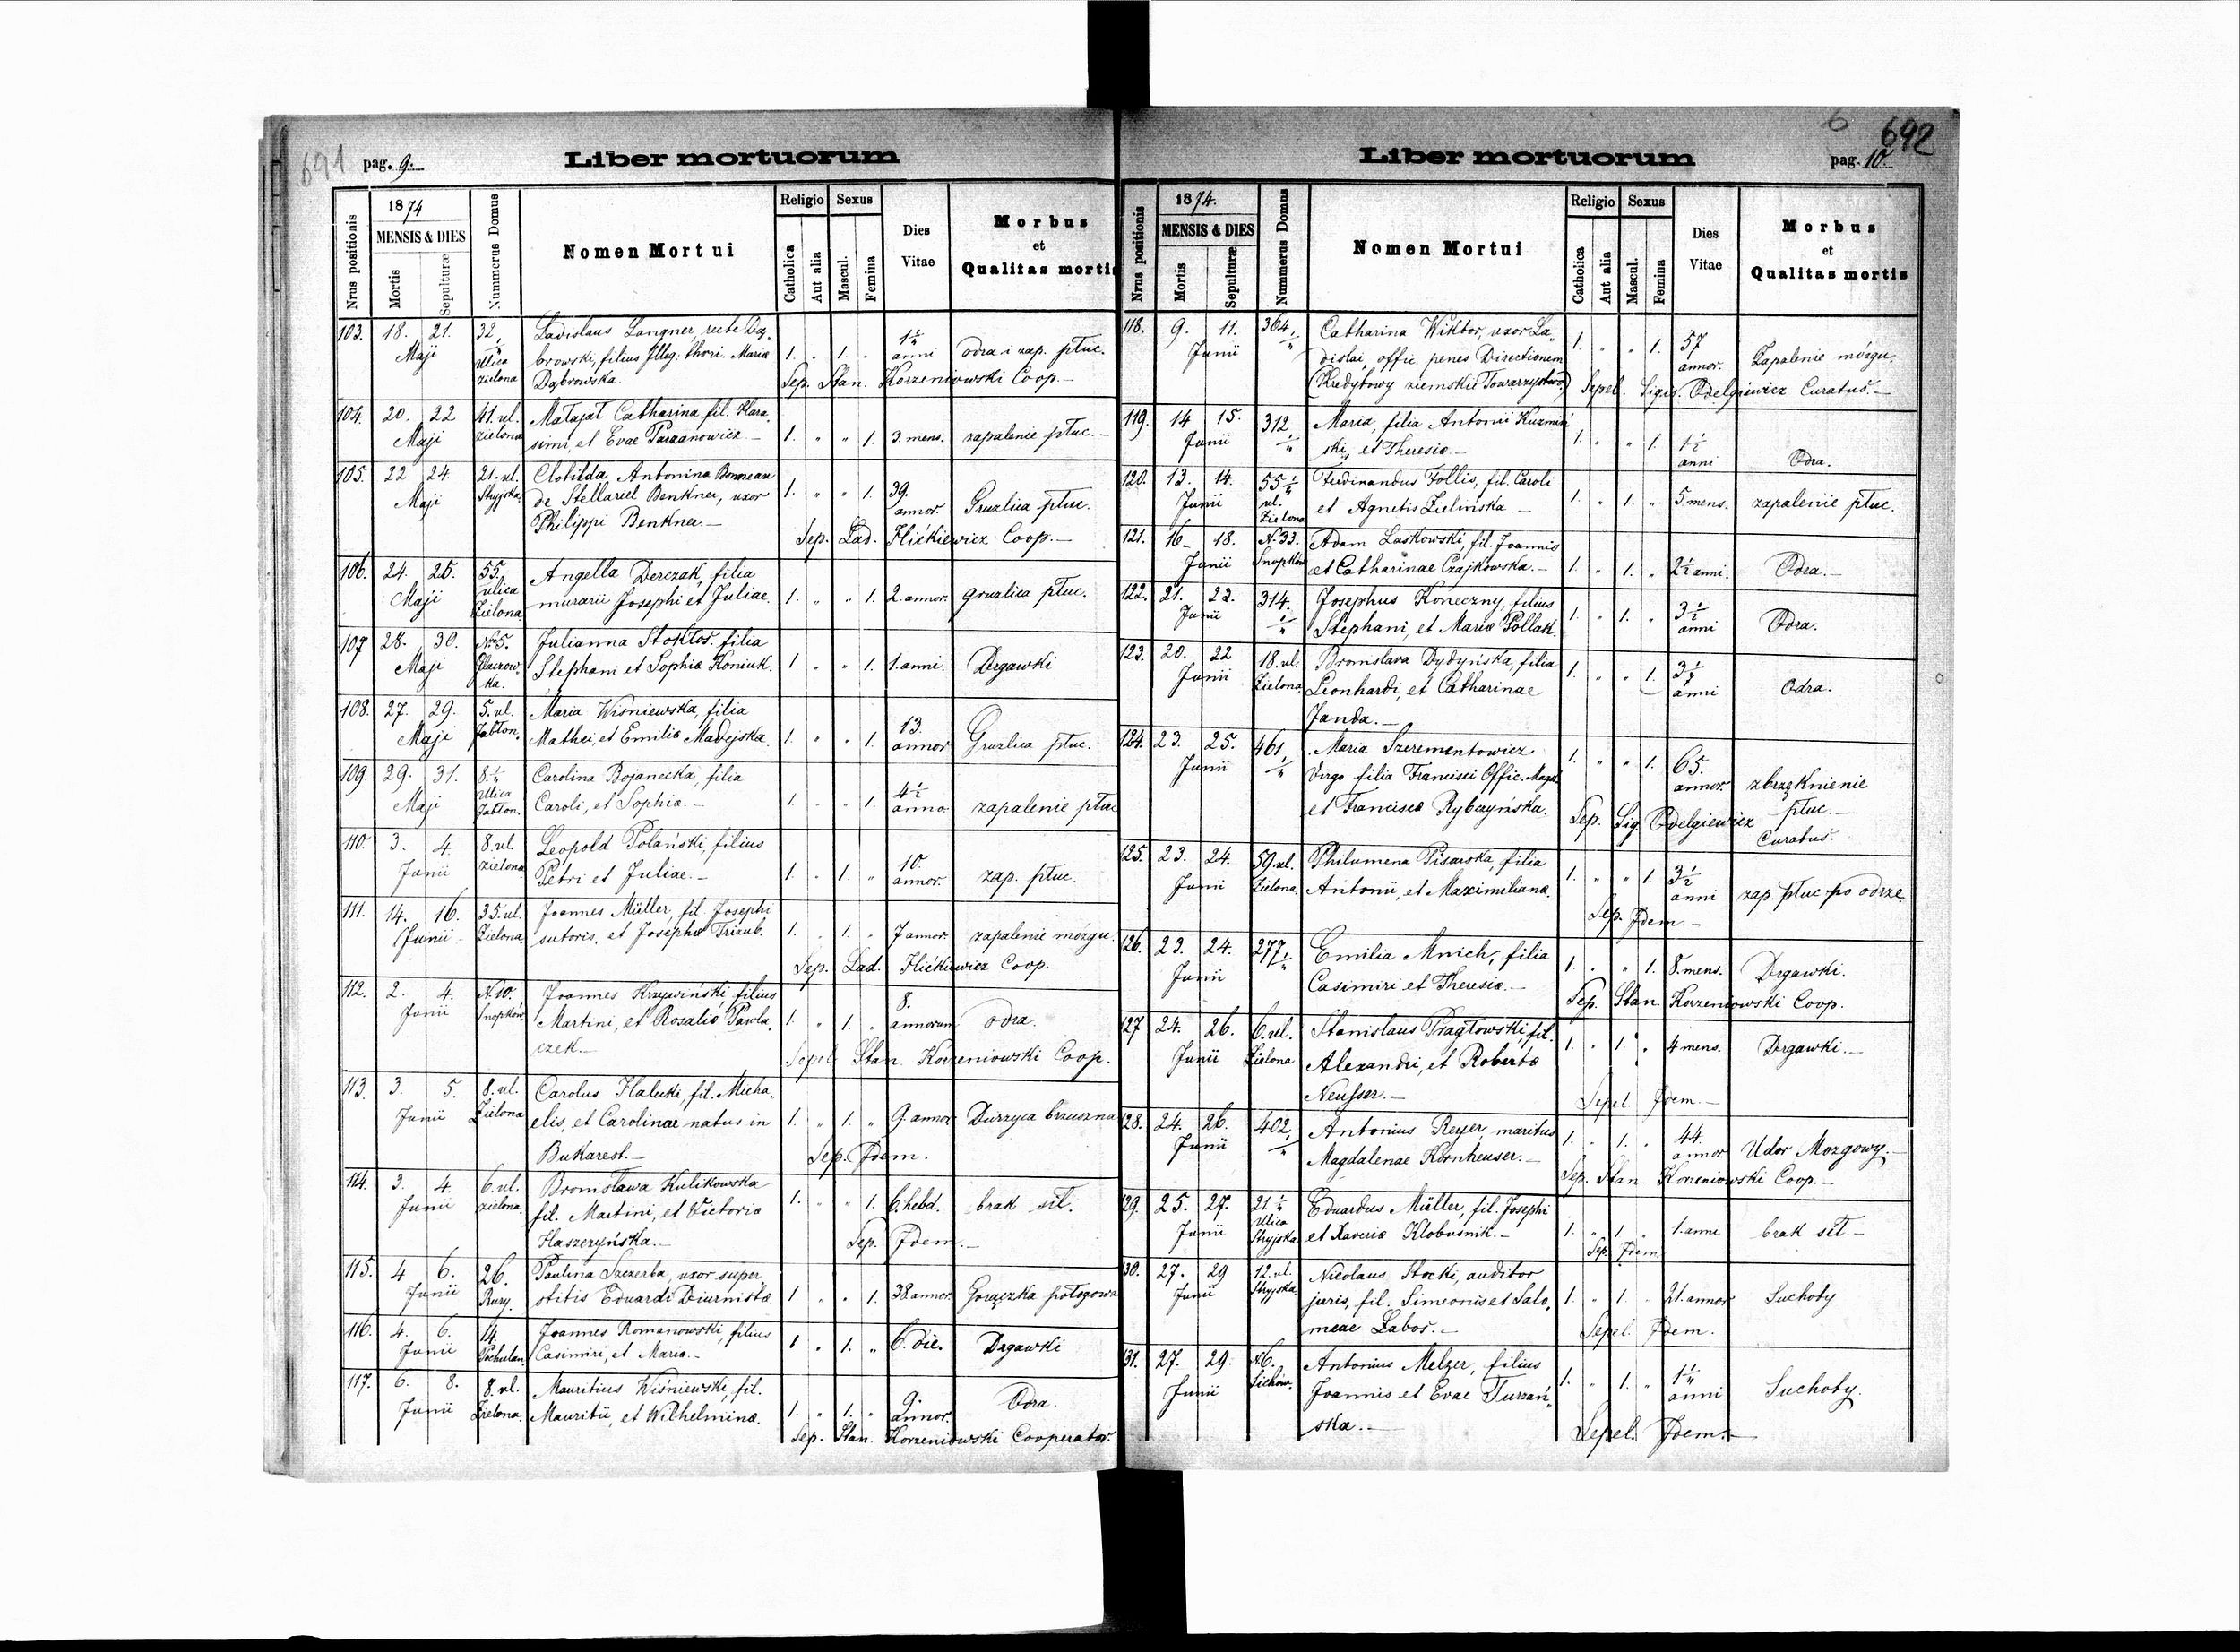 691 pag. 9. Liber mortuorum
Nrus positionis
1874
MENSIS & DIES
Mortis
Sepulturæ
Nummerus Domus
Nomen Mortui
Religio
Catholica
Aut alia
Sexus
Mascul.
Femina
Dies
Vitae
Morbus
et
Qualitas mortis
103. 18. 21. 32, Ladislaus Langner, recte Dą-
Maji Ulica browski, filius Illeg: thori. Maria 1. " 1. anni odra i zap. płuc.
zielona Dąbrowska. Sep. Stan. Korzeniowski Coop.
104. 20. 22 41. ul. Matajat Catharina fil. Hara
Maji zielona simi, et Evae Parzanowicz. 1. " " 1. 3. mens. zapalenie płuc.
105. 22 24. 21. ul. Clotilda, Antonina Bonneau
Maji Stryjska. de Stellariel Benkner, uxor 1. " " 1. 39. annor. Gruzlica płuc.
Philippi Benkner. Sep. Lad. Hićkiewicz Coop.
106. 24. 26. 55. Angella Derczak, filia
Maji ulica Zielona murarii Josephi et Juliae. 1. " " 1. 2. annor. gruzlica płuc.
107 28. 30. No 5. Julianna Stoktos. filia
Maji Stephani et Sophiæ Koniuk. 1. " " 1. 1. anni. Drgawki
108. 27. 29. 5. ul. Maria Wiśniewska, filia
Maji Jabłon. Mathei, et Emiliæ Madejska. 1. " " 1. 13. annor Gruzlica płuc.
109. 29. 31. 8. Carolina Bojanecka, filia
Maji Ulica Jabłon. Caroli, et Sophiæ. 1. " " 1. 4½ anno zapalenie płuc
110. 3. 4. 8. ul. Leopold Polański, filius
Junii zielona Petri et Juliae. 1. " 1. " 10. annor. zap. płuc.
111. 14. 16. 35. ul. Joannes Müller, fil. Josephi
Junii Zielona. sutoris, et Josephæ Triaub. 1. " 1. " 7 annor. zapalenie mózgu.
Sep. Lad. Hićkiewicz Coop.
112. 2. 4. N. 10. Joannes Krzywiński, filius
Junii Snopków. Martini, et Rosaliæ Pawla, 1. " 1. " 8. annorum odra.
czek. Sepel. Stan. Korzeniowski Coop.
113. 3. 5. 8. ul. Carolus Halecki, fil. Micha,
Junii Zielona elis, et Carolinae natus in 1. " 1. " 9. annor Durzyca brzuszna
Bukarest. Sep. Idem.
114. 3. 4. 6. ul. Bronisława Kulikowska
Junii zielona. fil. Martini, et Victoriæ 1. " " 1. 6. hebd. brak sił.
Haszczyńska. Sep. Idem.
115. 4 6. 26. Paulina Szczerba, uxor super,
Junii Rury. stitis Eduardi Diurnistæ. 1 " " 1. 38 annor. Gorączka połogowa
116. 4. 6. 14. Joannes Romanowski, filius
Junii Pochulan. Casimiri, et Mariæ. 1 " 1. " 6. die. Drgawki
117. 6. 8. 8. ul. Mauritius Wiśniewski, fil.
Junii Zielona. Mauritii, et Wilhelminæ. 1. " 1. " 9. annor. Odra.
Sep. Stan. Korzeniowski Cooperator.
6 692
Liber mortuorum pag. 10
Nrus positionis
1874.
MENSIS & DIES
Mortis
Sepulturæ
Nummerus Domus
Nomen Mortui
Religio
Catholica
Aut alia
Sexus
Mascul.
Femina
Dies
Vitae
Morbus
et
Qualitas mortis
118. 9. 11. 364 Catharina Wiktor, uxor La"
Junii dislai, offic. penes Directionem 1. " " 1. 57 annor. Zapalenie mózgu.
(Kredytowy ziemskie Towarzystwo) Sepel. Sigis. Odelgiewicz Curatus.
119. 14 15. 312 Maria, filia Antonii Kuzmiń
Junii ski, et Theresiæ 1. " " 1. 1½ anni Odra.
120. 13. 14. 55 Ferdinandus Follis, fil. Caroli
Junii ul. Zielona et Agnetis Zielińska 1. " 1. " 5. mens. zapalenie płuc.
121. 16 18. N. 33. Adam Laskowski, fil. Joannis
Junii Snopków et Catharinae Czajkowska. 1. " 1. " 2½ anni. Odra.
122. 21. 23. 314. Josephus Koneczny, filius
Junii Stephani, et Mariæ Pollak. 1. " 1. " 3½ anni Odra.
123. 20. 22 18. ul. Bronislava Dydyńska, filia
Junii Zielona. Leonhardi, et Catharinae 1. " " 1. anni Odra.
Janda.
124. 23. 25. 461, Maria Szerementowicz
Junii Virgo filia Francisci Offic. Magd. 1. " " 1. 65. annor. zbrzęknienie
et Franciscæ Rybczyńska. Sep. Sig. Odelgiewicz płuc.
Curatus.
125. 23. 24. 59. ul. Philumena Pisarska, filia
Junii Zielona. Antonii, et Maximilianæ. 1. " " 1. 3½ anni zap. płuc po odrze
Sep. Idem.
126. 23. 24. 277, Emilia Mnich, filia
Junii Casimiri et Theresiæ. 1. " " 1. 8. mens. Drgawki.
Sep. Stan. Korzeniowski Coop.
127 24. 26. 6. ul. Stanislaus Pragłowski, fil.
Junii Zielona Alexandri, et Robertæ 1. " 1. " 4 mens. Drgawki.
Neusser. Sepel. Idem.
128. 24. 26. 402, Antonius Reyer, maritus
Junii Magdalenae Kornheuser. 1. " 1. " 44. annor Udar Mozgowy.
Sep. Stan. Korzeniowski Coop.
129. 25. 27. 21. Eduardus Müller, fil. Josephi
Junii Ulica Stryjska et Xaveriæ Klobusnik. 1. " 1 " 1. anni brak sił.
Sep. Idem
130. 27. 29 12. ul. Nicolaus Stocki, auditor
Junii Stryjska. juris, fil. Simeonis et Salo, 1. " 1. " 21. annor Suchoty
meae Labos. Sepel. Idem.
131. 27. 29. N6. Antonius Melzer, filius
Junii Sichów. Joannis et Evae Turzań, 1. " 1. " anni Suchoty.
ska. Sepel. Idem.